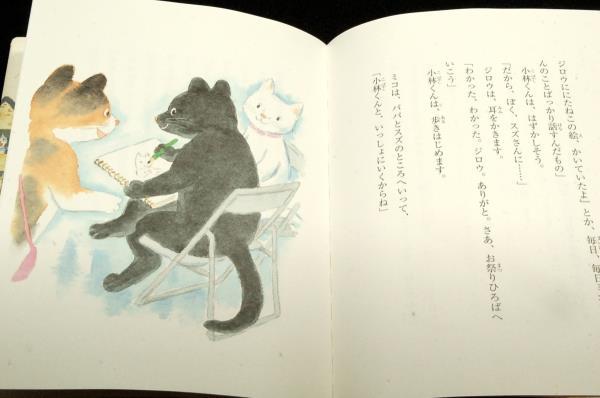 ジロウににたねこの絵、かいていたよ」とか、毎日、毎日ス
んのことばっかり話すんだもの」
小林くんは、はずかしそう。
「だから、ぼく、スズさんに……」
ジロウは、耳をかきます。
「わかった、わかった。ジロウ。ありがと。さあ、お祭りひろばへ
いこう」
小林くんは、歩きはじめます。
ミコは、パパとスズのところへいって、
「小林くんと、いっしょにいくからね」